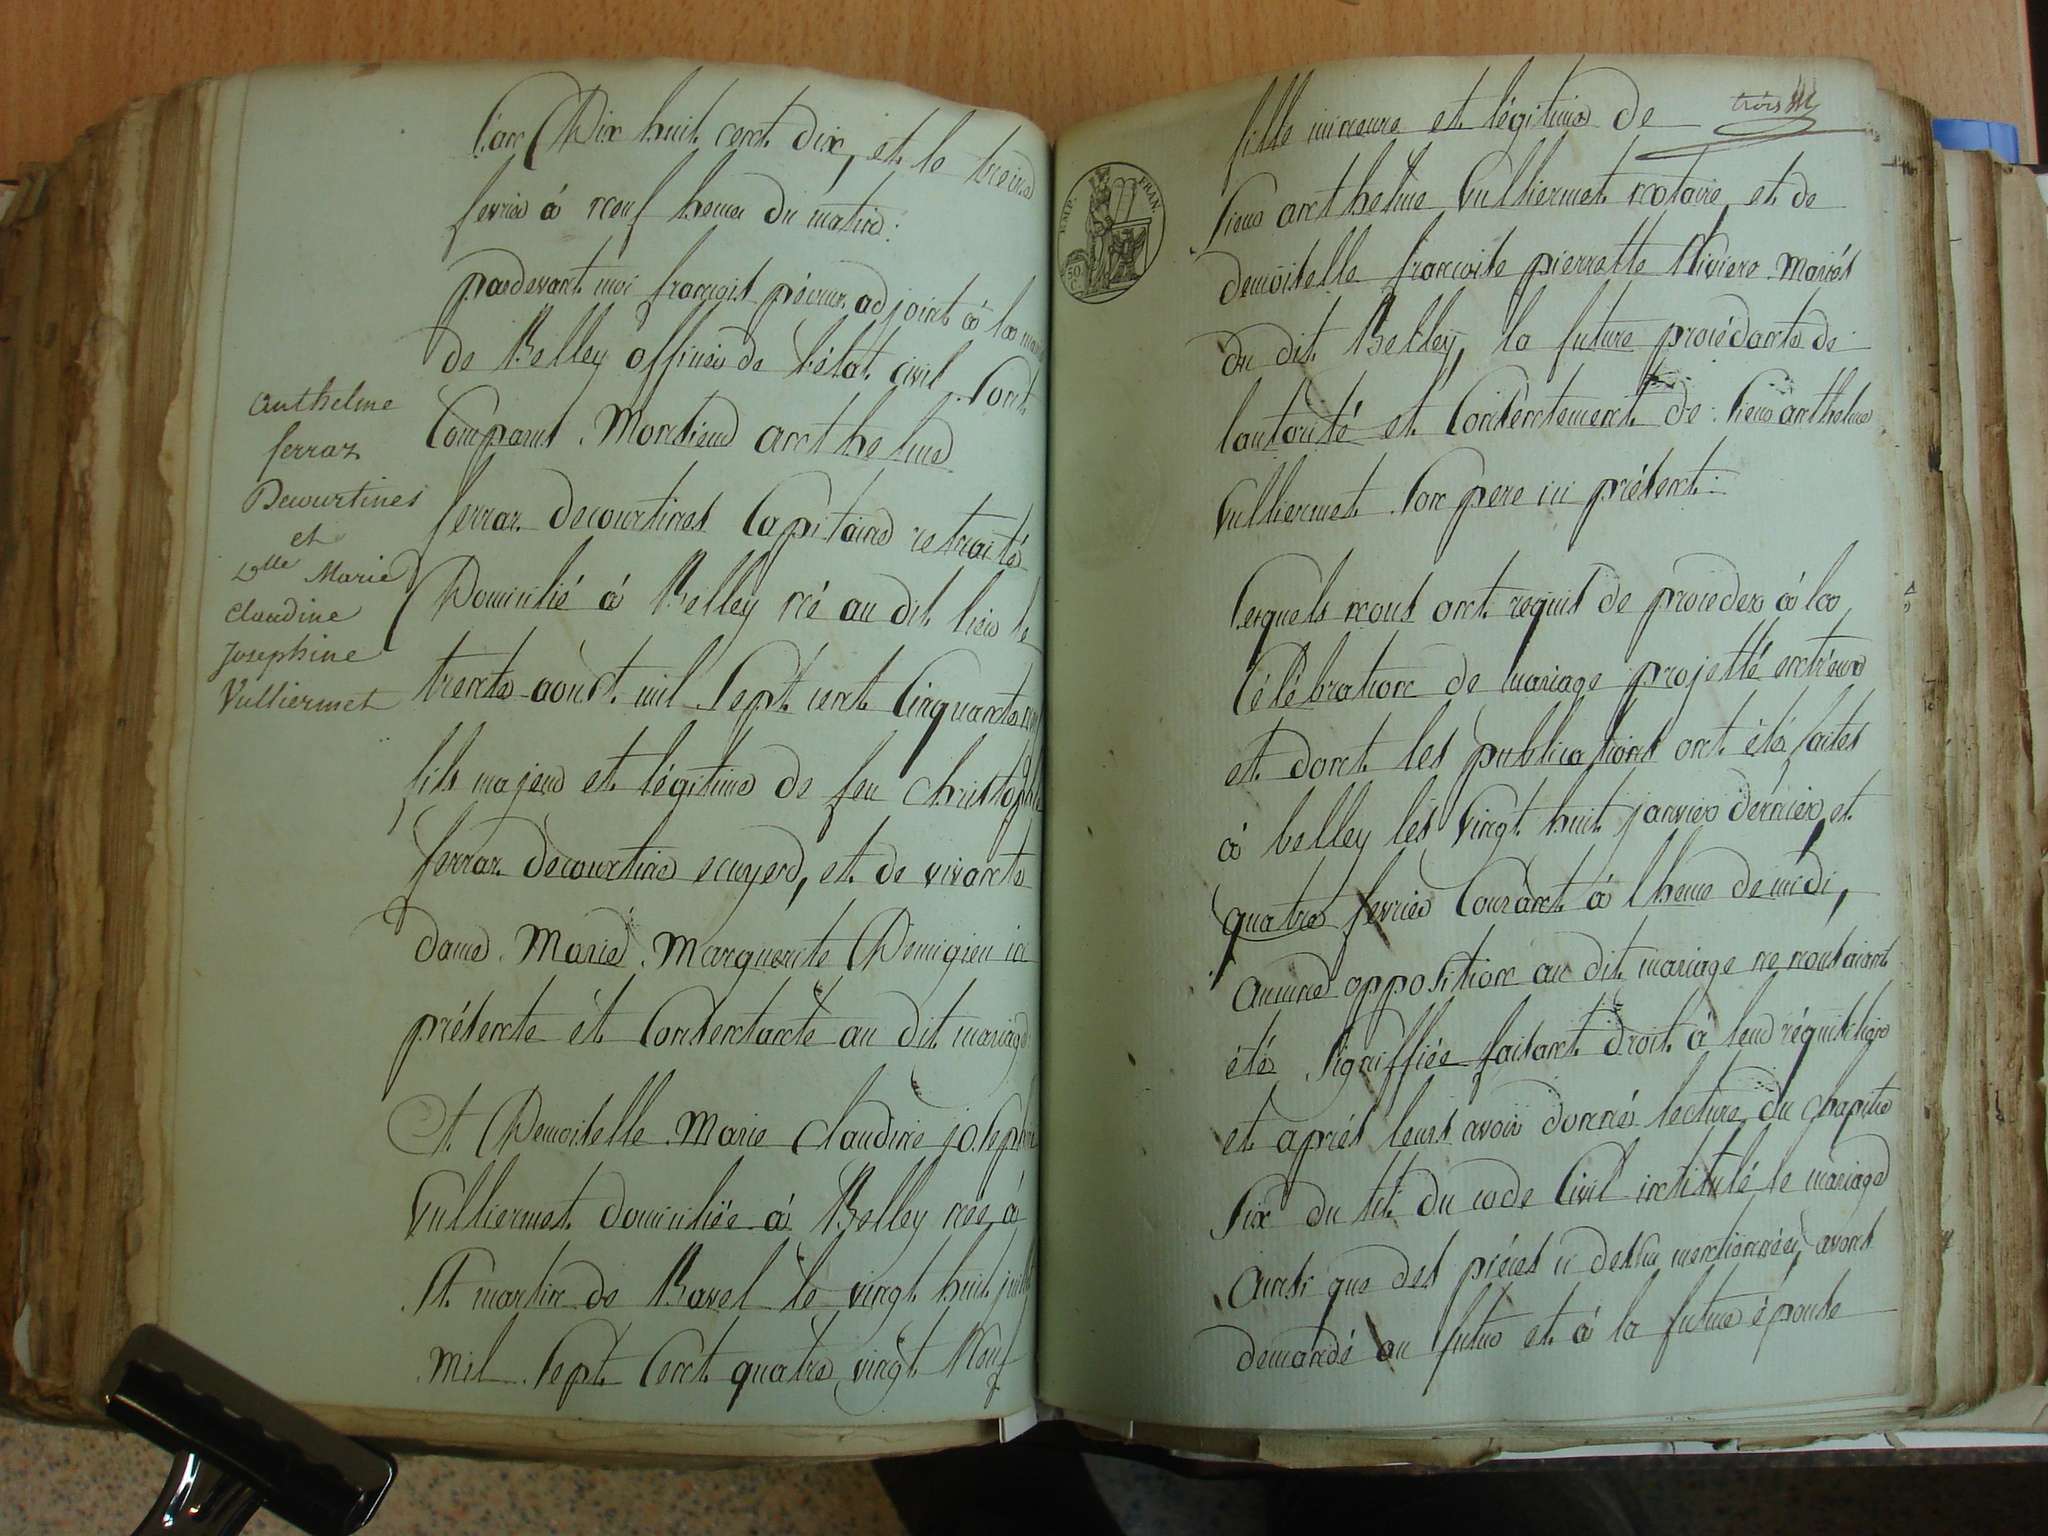 L'an Dix huit cent dix, et le treize
fevrier à neuf heures du matin:
pardevant moi françois adjoint à la
de Belley officier de l'état civil sont
Comparus Monsieur anthelme
ferraz decourtines Capitaine retraité
Domicilié à Belley né au dit lieu le
trente août mil sept cent Cinquante
fils majeur et légitime de feu christophe
ferraz decourtine ecuyer, et de vivante
dame Marie Marguerite Demigieu ici
présente et Consentante au dit mariage
Et Demoiselle Marie Claudine josephine
Vulliermet domiciliée à Belley née à
St. martin de Bavel le vingt huit
mil sept Cent quatre vingt Neuf
anthelme
ferraz
Decourtines
et
Dlle Marie
Claudine
Josephine
Vulliermet
trois
EMP. FRAN.
50
fille mineure et légitime de
sieur anthelme Vulliermet notaire et de
demoiselle francoise pierrette Riviere Mariés
du dit Belley, la future procédante de
lautorité et Consentement de sieur anthelme
Vulliermet son pere ici présent:
lesquels nous ont requis de proceder à la
Célébration de mariage projetté entr'eux
et dont les publications ont été faites
à belley les Vingt huit janvier dernier et
quatre fevrier Courant à l'heure de midi,
aucune opposition au dit mariage ne nous aiant
été signiffiée faisant droit à leur réquisition
et aprés leurs avoir donné lecture du chapitre
six du tit. du code Civil intitulé le mariage
ainsi que des piéces ci dessus mentionnées, avons
demandé au futur et à la future épouse